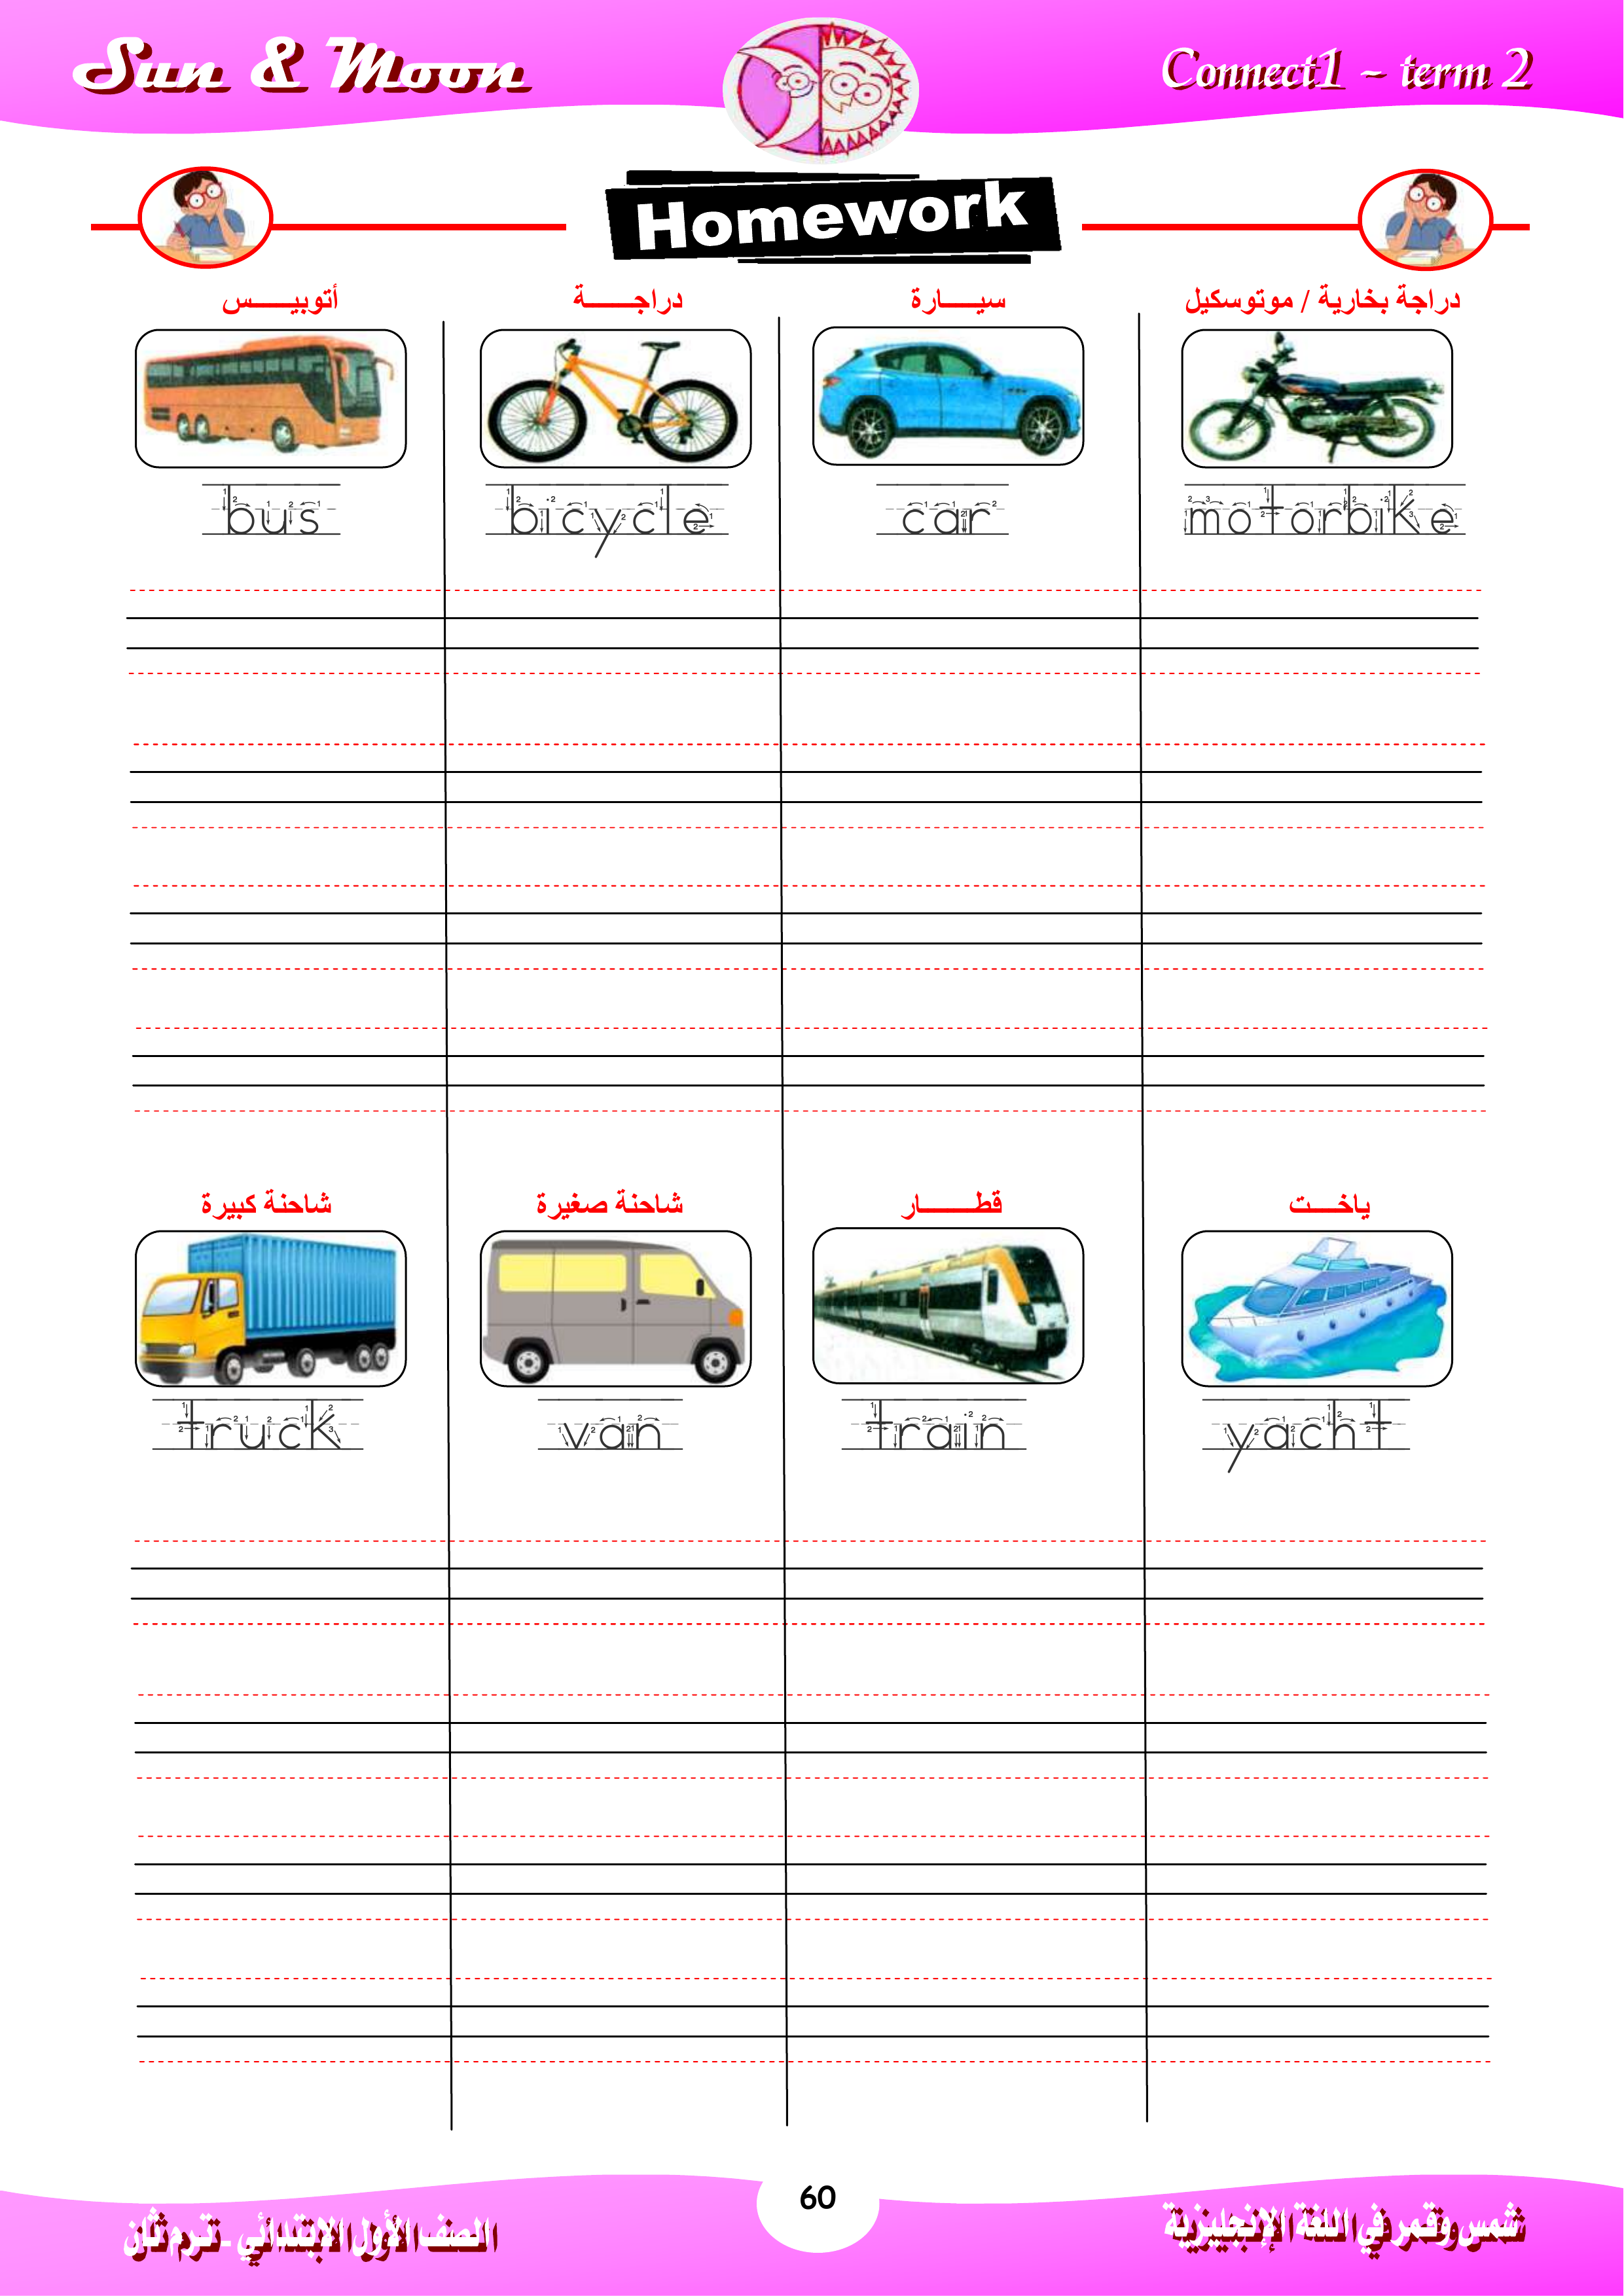 Sun & Moon
Connect1 – term 2
Homework
أتوبيـــــس
دراجـــــة
سيـــارة
دراجة بخارية / موتوسكيل
bus
bicycle
car
motorbike
شاحنة كبيرة
شاحنة صغيرة
قطـــــار
ياخـــت
truck
van
train
yacht
60
الصف الأول الابتدائي - ترم ثان
شمس وقمر في اللغة الإنجليزية